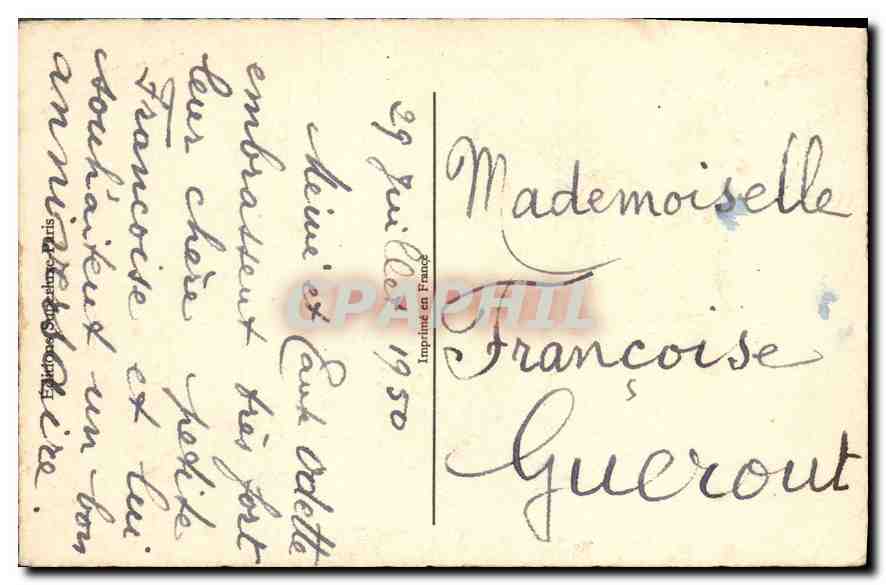 29 Juillet 1950
Mémé et Tante Odette
embrassent très fort
leur chère petite
Françoise et lui
souhaitent un bon
anniversaire.
Editions Superluxe-Paris
Imprimé en France
Mademoiselle
Françoise
Guerout
CPAPHIL